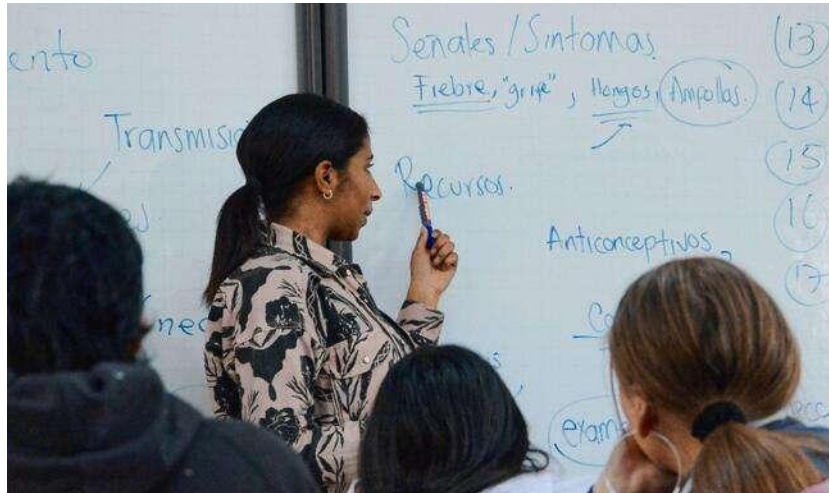 ento
Transmisi
es.
nec
Señales / Sintomas
Fiebre, "gripe", Hongos, Ampollas.
Recursos.
Anticonceptivos,
Co
exam
(13)
(14)
(15)
16
17